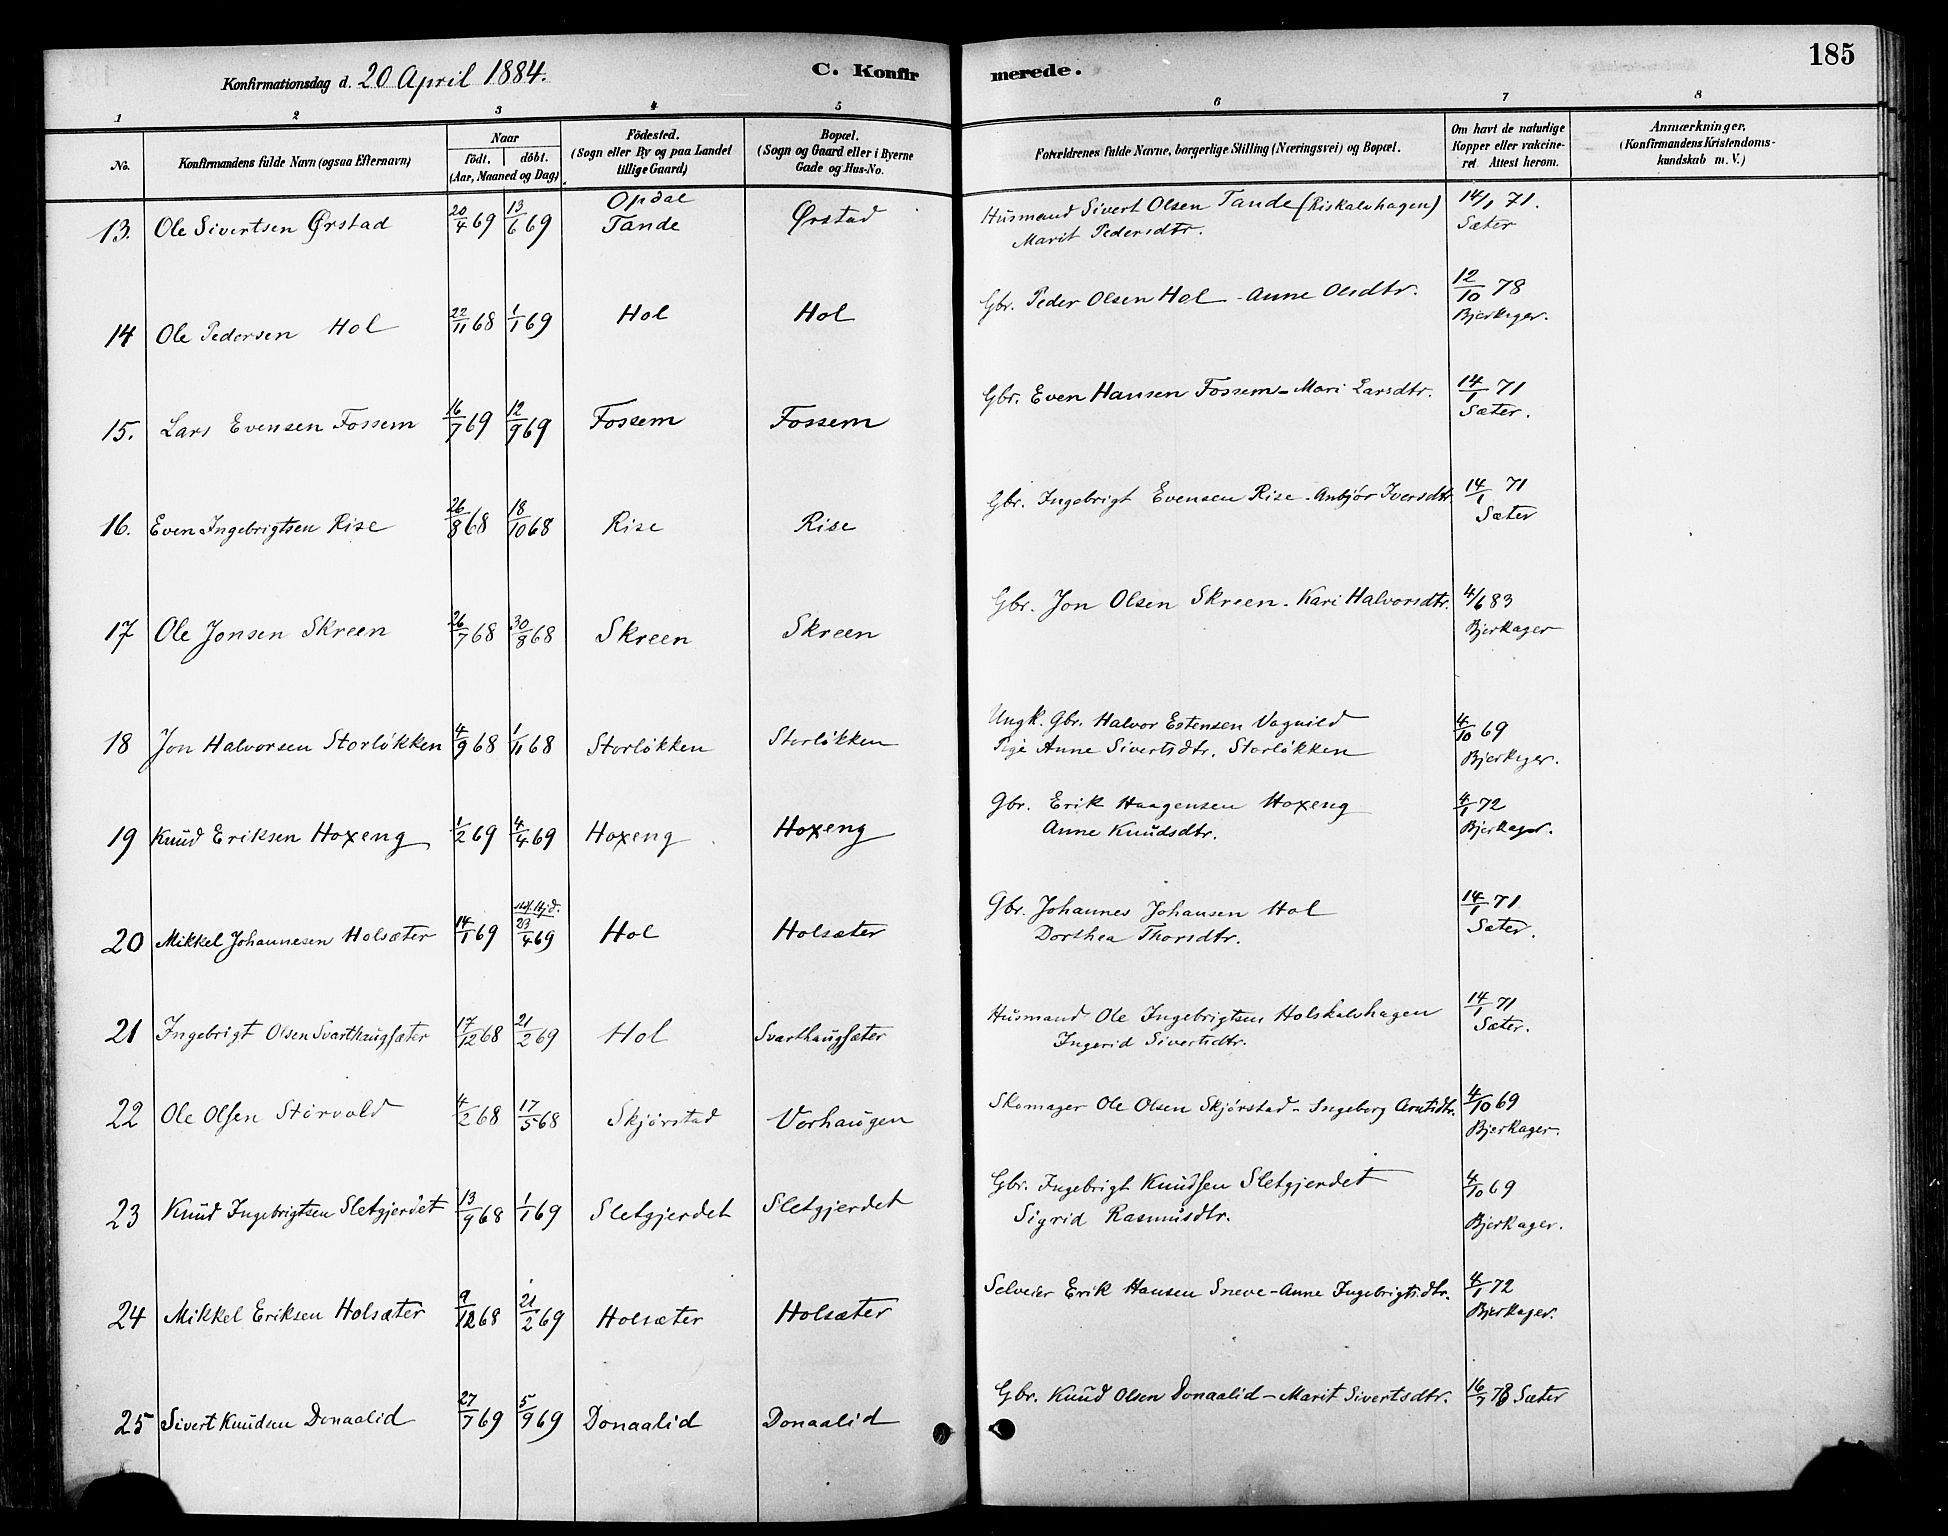 Konfirmationsdag d. 20 April 1884.
C. Konfirmerede.
185
1 2 3 4 5 6 7 8
No.
Konfirmandens fulde Navn (ogsaa Efternavn)
Naar
födt. döbt.
(Aar, Maaned og Dag)
Födested.
(Sogn eller By og paa Landet
tillige Gaard)
Bopæl.
(Sogn og Gaard eller i Byerne
Gade og Hus-No.
Forældrenes fulde Navne, borgerlige Stilling (Næringsvei) og Bopæl.
Om havt de naturlige
Kopper eller vakcine-
ret. Attest herom.
Anmærkninger.
(Konfirmandens Kristendoms-
kundskab m. V.)
13. Ole Sivertsen Ørstad 20/4 69 13/6 69 Opdal Tande Ørstad Husmand Sivert Olsen Tande (Riskalvhagen) 14/1 71.
Marit Pedersdtr. Sæter
14 Ole Pedersen Hol 22/11 68 1/1 69 Hol Hol Gbr. Peder Olsen Hol - Anne Olsdtr. 12/10 78
Bjerkager.
15. Lars Evensen Fossem 16/7 69 12/9 69 Fossem Fossem Gbr. Even Hansen Fossem - Mari Larsdtr. 14/1 71
Sæter.
16. Even Ingebrigtsen Rise 26/8 68 18/10 68 Rise Rise Gbr. Ingebrigt Evensen Rise - Anbjør Iversdtr. 14/1 71
Sæter
17 Ole Jonsen Skreen 26/7 68 30/8 68 Skreen Skreen Gbr. Jon Olsen Skreen - Kari Halvorsdtr. 4/6 83
Bjerkager
18 Jon Halvorsen Storløkken 4/9 68 1/11 68 Storløkken Storløkken Ungk. Gbr. Halvor Estensen Vognild 4/10 69
Pige Anne Sivertsdtr. Storløkken Bjerkager.
19 Knud Eriksen Hoxeng 1/2 69 4/4 69 Hoxeng Hoxeng Gbr. Erik Haagensen Hoxeng 4/1 72
Anne Knudsdtr. Bjerkager.
20 Mikkel Johannesen Holsæter 14/1 69 23/4 69 Hol Holsæter Gbr. Johannes Johansen Hol 14/1 71
Dorthea Thorsdtr. Sæter.
21 Ingebrigt Olsen Svarthaugsæter 17/12 68 21/2 69 Hol Svarthaugsæter Husmand Ole Ingebrigtsen Holskalvhagen 14/1 71
Ingerid Sivertsdtr. Sæter.
22 Ole Olsen Størvold 4/2 68 17/5 68 Skjørstad Vorhaugen Skomager Ole Olsen Skjørstad - Ingeborg Arntsdtr. 4/10 69
Bjerkager.
23 Knud Ingebrigtsen Sletgjerdet 13/9 68 1/1 69 Sletgjerdet Sletgjerdet Gbr. Ingebrigt Knudsen Sletgjerdet 4/10 69
Sigrid Rasmusdtr. Bjerkager.
24 Mikkel Eriksen Holsæter 9/12 68 21/2 69 Holsæter Holsæter Selveier Erik Hansen Sneve - Anne Ingebrigtsdtr. 4/1 72
Bjerkager.
25 Sivert Knudsen Donaalid 27/7 69 5/9 69 Donaalid Donaalid Gbr. Knud Olsen Donaalid - Marit Sivertsdtr. 16/7 78 Sæter